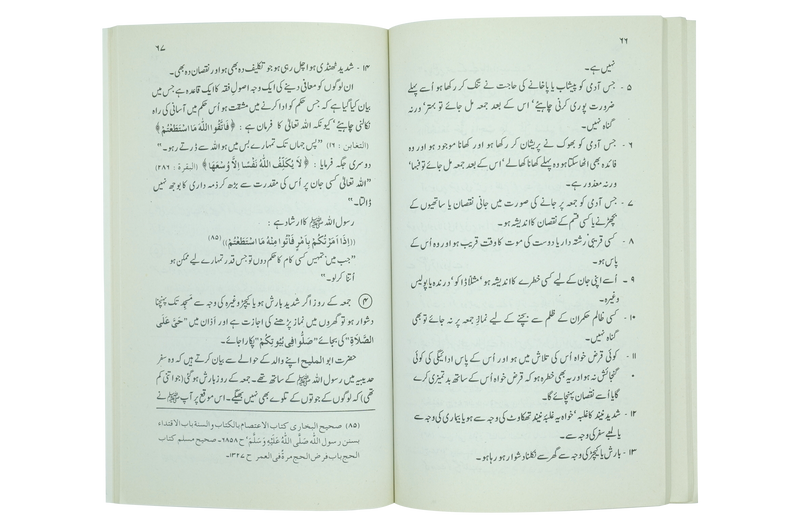 ۶۶
نہیں ہے۔
۵ - جس آدمی کو پیشاب یا پاخانے کی حاجت نے تنگ کر رکھا ہو اُسے پہلے
ضرورت پوری کرنی چاہیے‘ اس کے بعد جمعہ مل جائے تو بہتر‘ ورنہ
گناہ نہیں۔
۶ - جس آدمی کو بھوک نے پریشان کر رکھا ہو اور کھانا موجود ہو اور وہ
فائدہ بھی اٹھا سکتا ہو وہ پہلے کھانا کھا لے‘ اس کے بعد جمعہ مل جائے تو فبہا‘
ورنہ معذور ہے۔
۷ - جس آدمی کو جمعہ پر جانے کی صورت میں جانی نقصان یا ساتھیوں کے
بچھڑنے یا کسی قسم کے نقصان کا اندیشہ ہو۔
۸ - کسی قریبی رشتہ دار یا دوست کی موت کا وقت قریب ہو اور وہ اُس کے
پاس ہو۔
۹ - اُسے اپنی جان کے لیے کسی خطرے کا اندیشہ ہو‘ مثلاً ڈاکو‘ درندہ یا پولیس
وغیرہ۔
۱۰ - کسی ظالم حکمران کے ظلم سے بچنے کے لیے نمازِ جمعہ پر نہ جائے تو بھی
گناہ نہیں۔
۱۱ - کوئی قرض خواہ اُس کی تلاش میں ہو اور اُس کے پاس ادائیگی کی کوئی
گنجائش نہ ہو اور یہ بھی خطرہ ہو کہ قرض خواہ اُس کے ساتھ بدتمیزی کرے
گا یا اُسے نقصان پہنچائے گا۔
۱۲ - شدید نیند کا غلبہ‘ خواہ یہ غلبۂ نیند تھکاوٹ کی وجہ سے ہو یا بیماری کی وجہ سے
یا لمبے سفر کی وجہ سے۔
۱۳ - بارش یا کیچڑ کی وجہ سے گھر سے نکلنا دشوار ہو رہا ہو۔
۶۷
۱۴ - شدید ٹھنڈی ہوا چل رہی ہو جو تکلیف دہ بھی ہو اور نقصان دہ بھی۔
ان لوگوں کو معافی دینے کی ایک وجہ اصولِ فقہ کا ایک قاعدہ ہے جس میں
بیان کیا گیا ہے کہ جس حکم کو ادا کرنے میں مشقت ہو اُس حکم میں آسانی کی راہ
نکالنی چاہیے‘ کیونکہ اللہ تعالیٰ کا فرمان ہے : ﴿فَاتَّقُوا اللّٰهَ مَا اسْتَطَعْتُمْ﴾
(التغابن : ۱۶) ”پس جہاں تک تمہارے بس میں ہو اللہ سے ڈرتے رہو۔“
دوسری جگہ فرمایا : ﴿لَا يُكَلِّفُ اللّٰهُ نَفْسًا اِلَّا وُسْعَهَا﴾ (البقرة : ۲۸۶)
”اللہ تعالیٰ کسی جان پر اُس کی مقدرت سے بڑھ کر ذمہ داری کا بوجھ نہیں
ڈالتا۔“
رسول اللہ ﷺ کا ارشاد ہے :
((اِذَا اَمَرْتُكُمْ بِاَمْرٍ فَاْتُوْا مِنْهُ مَا اسْتَطَعْتُمْ)) (۸۵)
”جب میں تمہیں کسی کام کا حکم دوں تو جس قدر تمہارے لیے ممکن ہو
اُتنا کر لو۔“
۴ جمعہ کے روز اگر شدید بارش ہو یا کیچڑ وغیرہ کی وجہ سے مسجد تک پہنچنا
دشوار ہو تو گھروں میں نماز پڑھنے کی اجازت ہے اور اذان میں ”حَيَّ عَلَى
الصَّلَاةِ“ کی بجائے ”صَلُّوا فِي بُيُوتِكُمْ“ پکارا جائے۔
حضرت ابو الملیح اپنے والد کے حوالے سے بیان کرتے ہیں کہ وہ سفرِ
حدیبیہ میں رسول اللہ ﷺ کے ساتھ تھے۔ جمعہ کے روز بارش ہو گئی (جو اتنی کم
تھی) کہ لوگوں کے جوتوں کے تلوے بھی نہیں بھیگے۔ اس موقع پر آپ ﷺ نے
(۸۵) صحیح البخاری کتاب الاعتصام بالکتاب والسنة باب الاقتداء
بسنن رسول اللّٰه صَلَّى اللّٰهُ عَلَيْهِ وَسَلَّمَ‘ ح ۶۸۵۸۔ صحیح مسلم کتاب
الحج باب فرض الحج مرةً فی العمر ح ۱۳۲۷۔